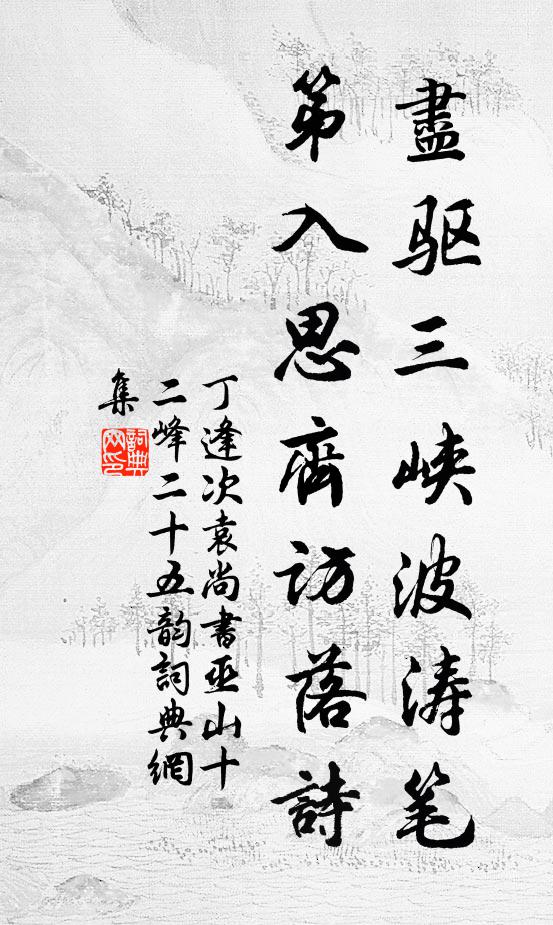 盡驱三峡波涛笔
第入思齊訪落詩
丁逢次袁尚書巫山十
二峰二十五韵詞典網
集
詞典
网印